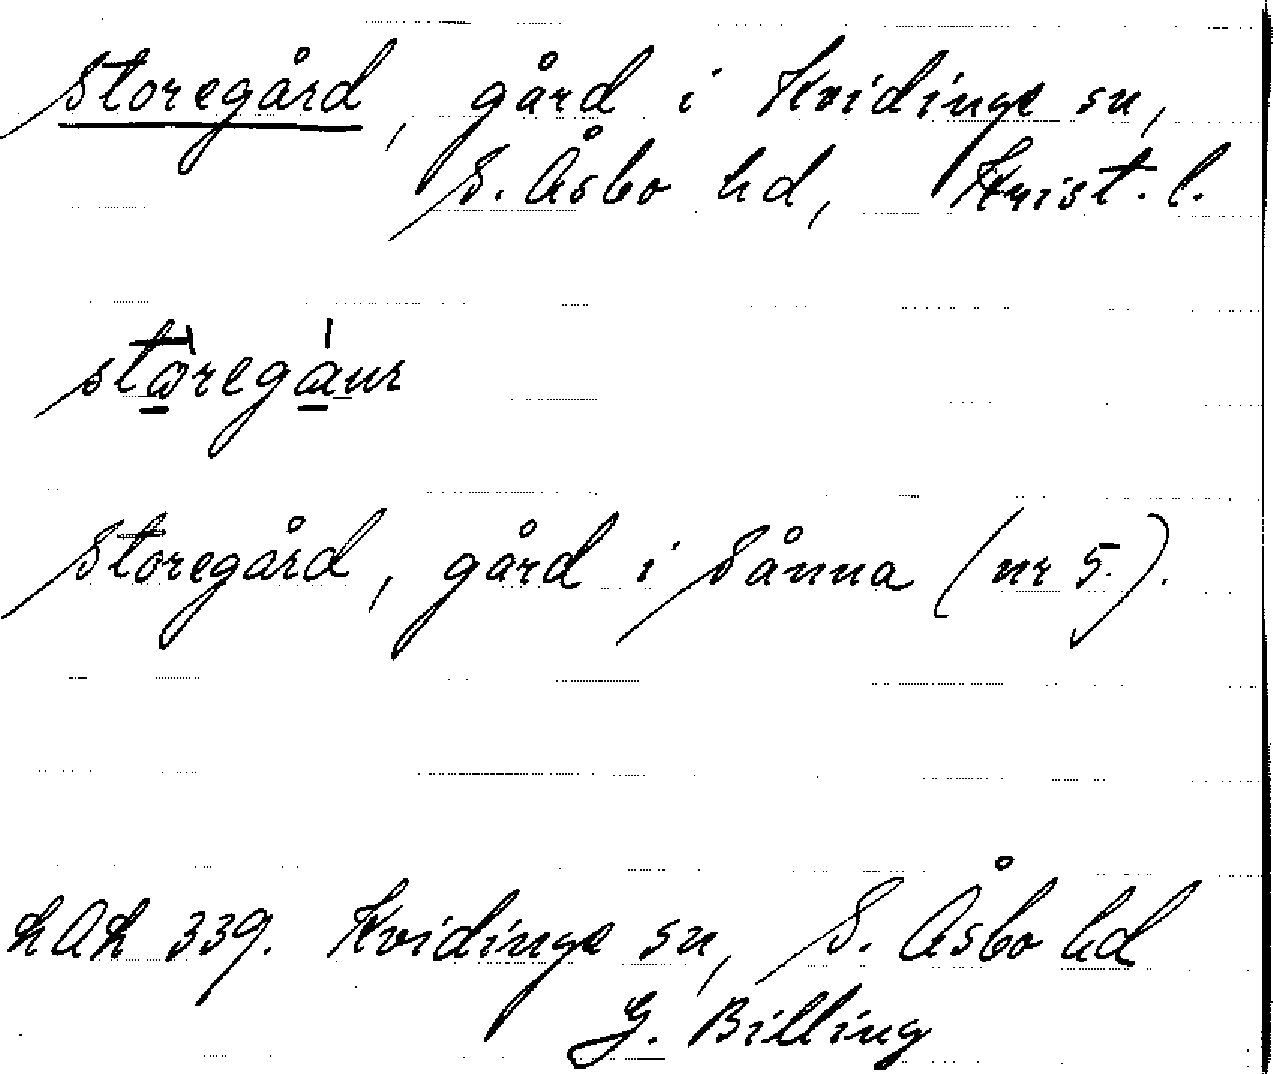 Storegård, gård i Kvidinge sn,
S. Åsbo hd, Krist. l.
Storegård, gård i Sånna (nr 5.).
LAL 339. Kvidinge sn, S. Åsbo hd
G. Billing